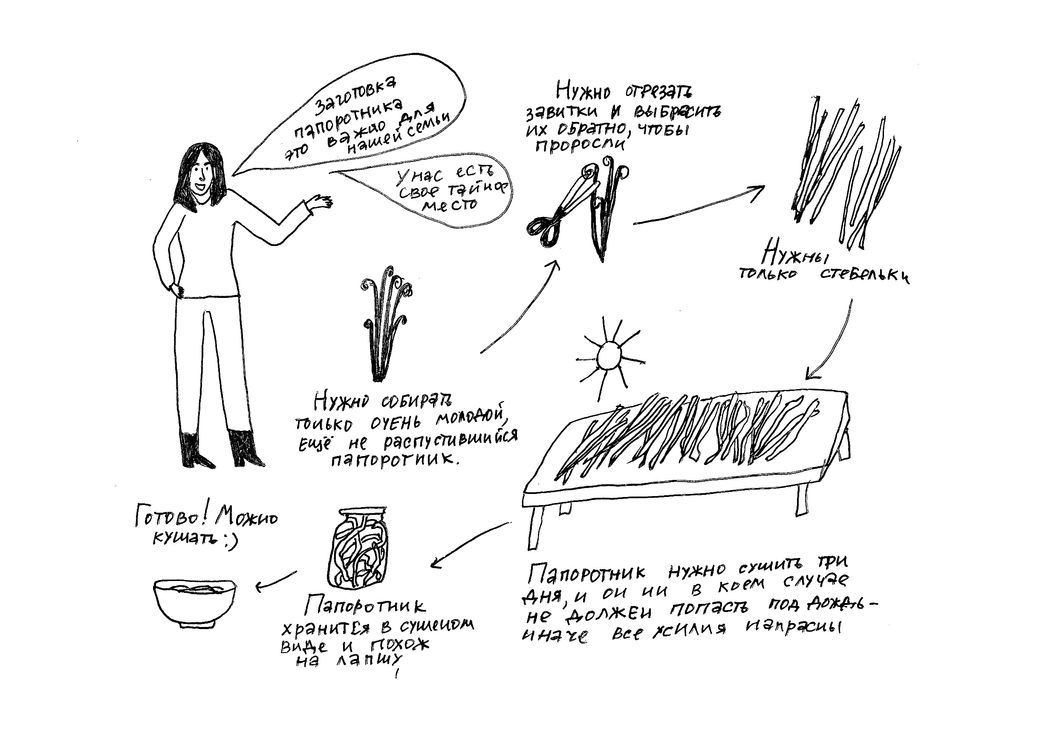 Заготовка
папоротника
это важно для
нашей семьи
У нас есть
свое тайное
место
Нужно собирать
только очень молодой,
ещё не распустившийся
папоротник.
Нужно отрезать
завитки и выбрасить
их обратно, чтобы
проросли
Нужны
только стебельки
Папоротник нужно сушить три
дня, и он ни в коем случае
не должен попасть под дождь –
иначе все усилия напрасны
Папоротник
хранится в сушеном
виде и похож
на лапшу
Готово! Можно
кушать :)